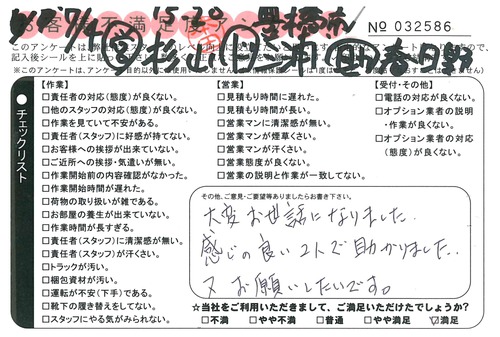 15:20
お客様不満足度アン
№ 032586
このアンケートは
記入後シールを上に貼って
※このアンケートは、アンケート目的以外に使用
チェックリスト
【作業】
□責任者の対応(態度)が良くない。
□他のスタッフの対応(態度)が良くない。
□作業を見ていて不安がある。
□責任者(スタッフ)に好感が持てない。
□お客様への挨拶が出来ていない。
□ご近所への挨拶・気遣いが無い。
□作業開始前の内容確認がなかった。
□作業開始時間が遅れた。
□荷物の取り扱いが雑である。
□お部屋の養生が出来ていない。
□作業時間が長すぎる。
□責任者(スタッフ)に清潔感が無い。
□責任者(スタッフ)が汗くさい。
□トラックが汚い。
□梱包資材が汚い。
□運転が不安(下手)である。
□靴下の履き替えをしてない。
□スタッフにやる気がみられない。
【営業】
□見積もり時間に遅れた。
□見積もり時間が長い。
□営業マンに清潔感が無い。
□営業マンが煙草くさい。
□営業マンが汗くさい。
□営業態度が良くない。
□営業の説明と作業が一致してない。
【受付・その他】
□電話の対応が良くない。
□オプション業者の説明
・作業が良くない。
□オプション業者の対応
(態度)が良くない。
その他、ご意見・ご要望等ありましたらお書き下さい。
大変お世話になりました.
感じの良い2人で助かりました.
又お願いしたいです。
☆当社をご利用いただきまして、ご満足いただけたでしょうか?
□不満 □やや不満 □普通 □やや満足 ☑満足